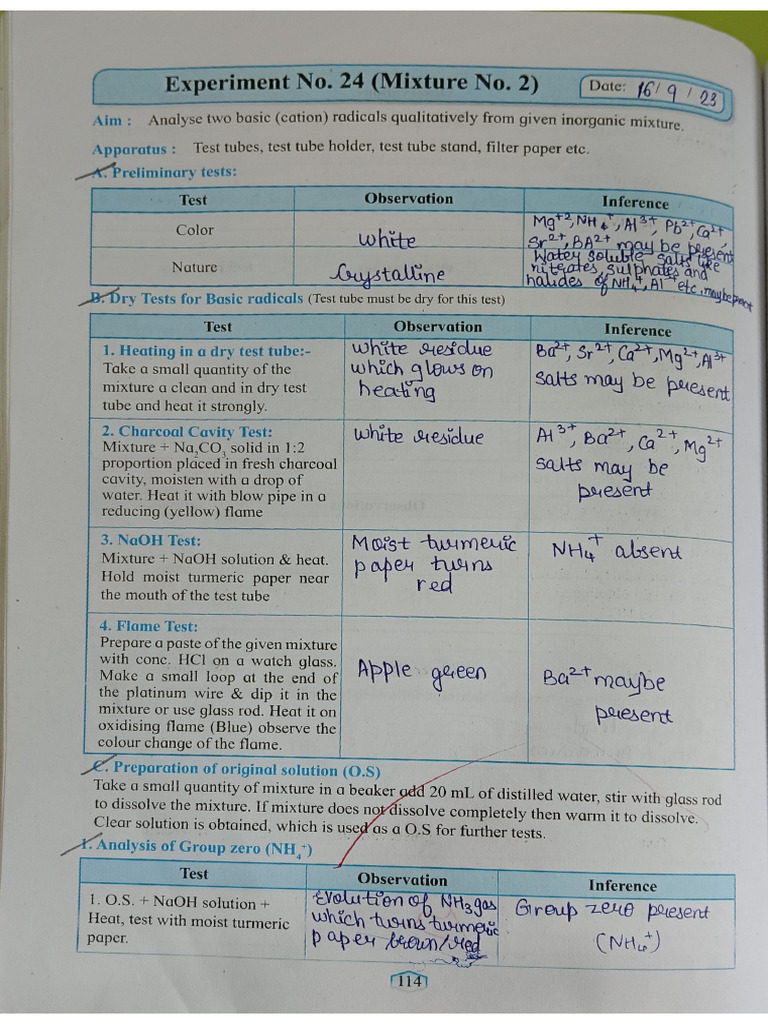 Experiment No. 24 (Mixture No. 2)
Date: 16/9/23
Aim : Analyse two basic (cation) radicals qualitatively from given inorganic mixture.
Apparatus : Test tubes, test tube holder, test tube stand, filter paper etc.
A. Preliminary tests:
Test Observation Inference
Color
White
Mg+2, NH4+, Al3+, Pb2+, Ca2+,
Sr2+, BA2+ may be present
Nature
Crystalline
Water soluble salts like
nitrates, sulphates and
halides of NH4+, Al+ etc. maybe present
B. Dry Tests for Basic radicals (Test tube must be dry for this test)
Test Observation Inference
1. Heating in a dry test tube:-
Take a small quantity of the
mixture a clean and in dry test
tube and heat it strongly.
White residue
which glows on
heating
Ba2+, Sr2+, Ca2+, Mg2+, Al3+
salts may be present
2. Charcoal Cavity Test:
Mixture + Na2CO3 solid in 1:2
proportion placed in fresh charcoal
cavity, moisten with a drop of
water. Heat it with blow pipe in a
reducing (yellow) flame
White residue
Al3+, Ba2+, Ca2+, Mg2+
salts may be
present
3. NaOH Test:
Mixture + NaOH solution & heat.
Hold moist turmeric paper near
the mouth of the test tube
Moist turmeric
paper turns
red
NH4+ absent
4. Flame Test:
Prepare a paste of the given mixture
with conc. HCl on a watch glass.
Make a small loop at the end of
the platinum wire & dip it in the
mixture or use glass rod. Heat it on
oxidising flame (Blue) observe the
colour change of the flame.
Apple green
Ba2+ maybe
present
C. Preparation of original solution (O.S)
Take a small quantity of mixture in a beaker add 20 mL of distilled water, stir with glass rod
to dissolve the mixture. If mixture does not dissolve completely then warm it to dissolve.
Clear solution is obtained, which is used as a O.S for further tests.
1. Analysis of Group zero (NH4+)
Test Observation Inference
1. O.S. + NaOH solution +
Heat, test with moist turmeric
paper.
Evolution of NH3 gas
which turns turmeric
paper brown/red
Group zero present
(NH4+)
114